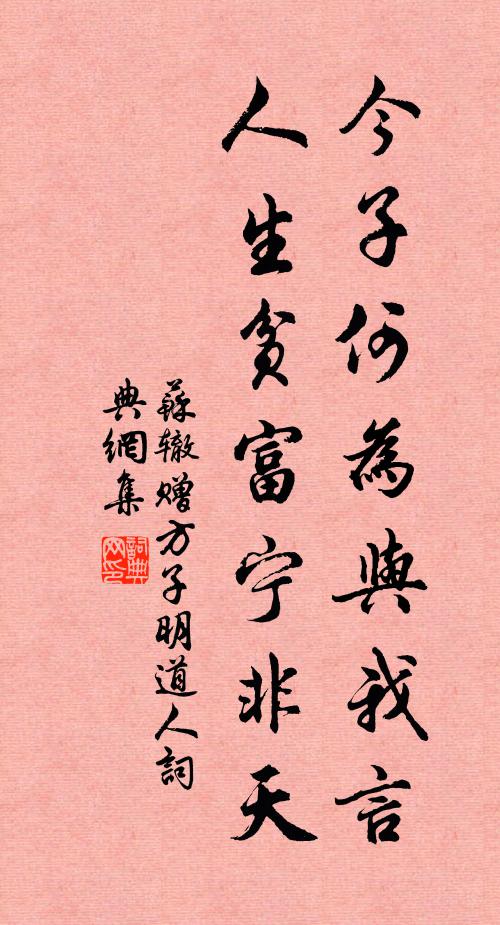 今子何為與我言
人生贫富宁非天
蘇辙赠方子明道人詞
典網集
詞典网印